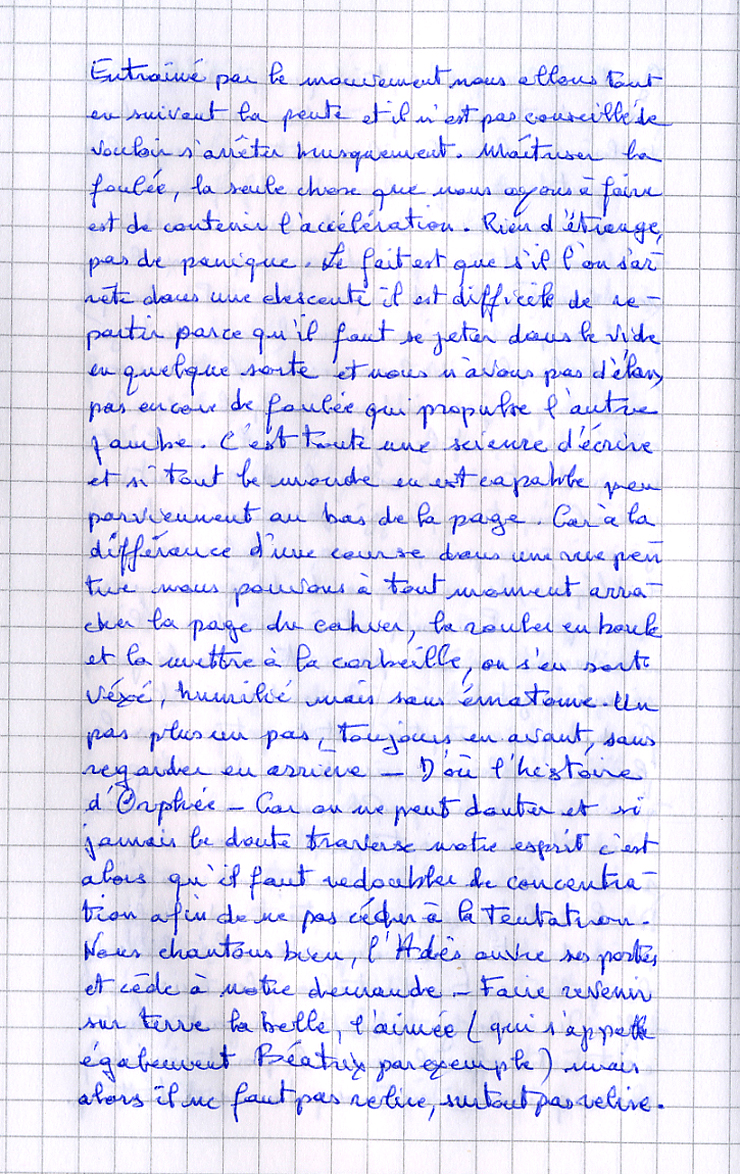 Entraîné par le mouvement nous allons tout
en suivant la pente et il n'est pas conseillé de
vouloir s'arrêter brusquement. Maîtriser la
foulée, la seule chose que nous ayons à faire
est de contenir l'accélération. Rien d'étrange,
pas de panique. Le fait est que s'il l'on s'ar-
rête dans une descente il est difficile de re-
partir parce qu'il faut se jeter dans le vide
en quelque sorte et nous n'avons pas d'élan,
pas encore de foulée qui propulse l'autre
jambe. C'est toute une science d'écrire
et si tout le monde en est capable peu
parviennent au bas de la page. Car à la
différance d'une course dans une rue pen-
tue nous pouvons à tout moment arra-
cher la page du cahier, la rouler en boule
et la mettre à la corbeille, on s'en sort
véxé, humilié mais sans ématome. Un
pas plus un pas, toujours en avant, sans
regarder en arrière – D'où l'histoire
d'Orphée – Car on ne peut douter et si
jamais le doute traverse notre esprit c'est
alors qu'il faut redoubler de concentra-
tion afin de ne pas céder à la tentation.
Nous chantons bien, l'Adès ouvre ses portes
et cède à notre demande – Faire revenir
sur terre la belle, l'aimée (qui s'appelle
également Béatrix par exemple) mais
alors il ne faut pas relire, surtout pas relire.